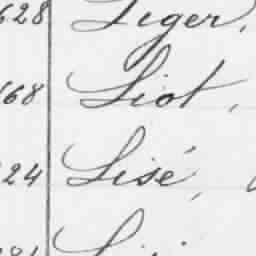 628 Leger,
168 Liot,
24 Lisé,